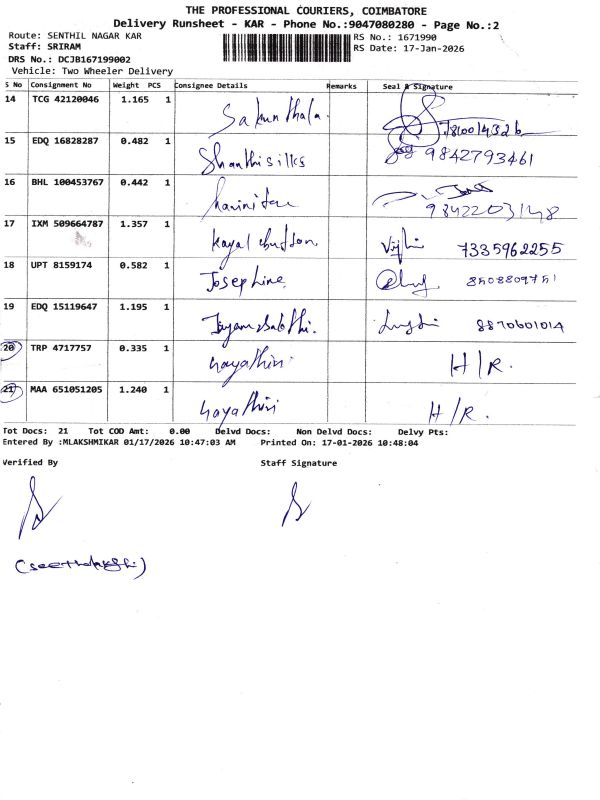 THE PROFESSIONAL COURIERS, COIMBATORE
Delivery Runsheet - KAR - Phone No.:9047080280 - Page No.:2
Route: SENTHIL NAGAR KAR
RS No.: 1671990
Staff: SRIRAM
RS Date: 17-Jan-2026
DRS No.: DCJB167199002
Vehicle: Two Wheeler Delivery
S No Consignment No Weight PCS Consignee Details Remarks Seal & Signature
14 TCG 42120046 1.165 1 Sakunthala.
15 EDQ 16828287 0.482 1 Shanthisilks 9842793461
16 BHL 100453767 0.442 1 9842203148
17 IXM 509664787 1.357 1 7335962255
18 UPT 8159174 0.582 1 Josephine 8508809751
19 EDQ 15119647 1.195 1 8870601014
20 TRP 4717757 0.335 1 Gayathiri H/R.
21 MAA 651051205 1.240 1 Gayathiri H/R.
Tot Docs: 21 Tot COD Amt: 0.00 Delvd Docs: Non Delvd Docs: Delvy Pts:
Entered By :MLAKSHMIKAR 01/17/2026 10:47:03 AM Printed On: 17-01-2026 10:48:04
Verified By Staff Signature